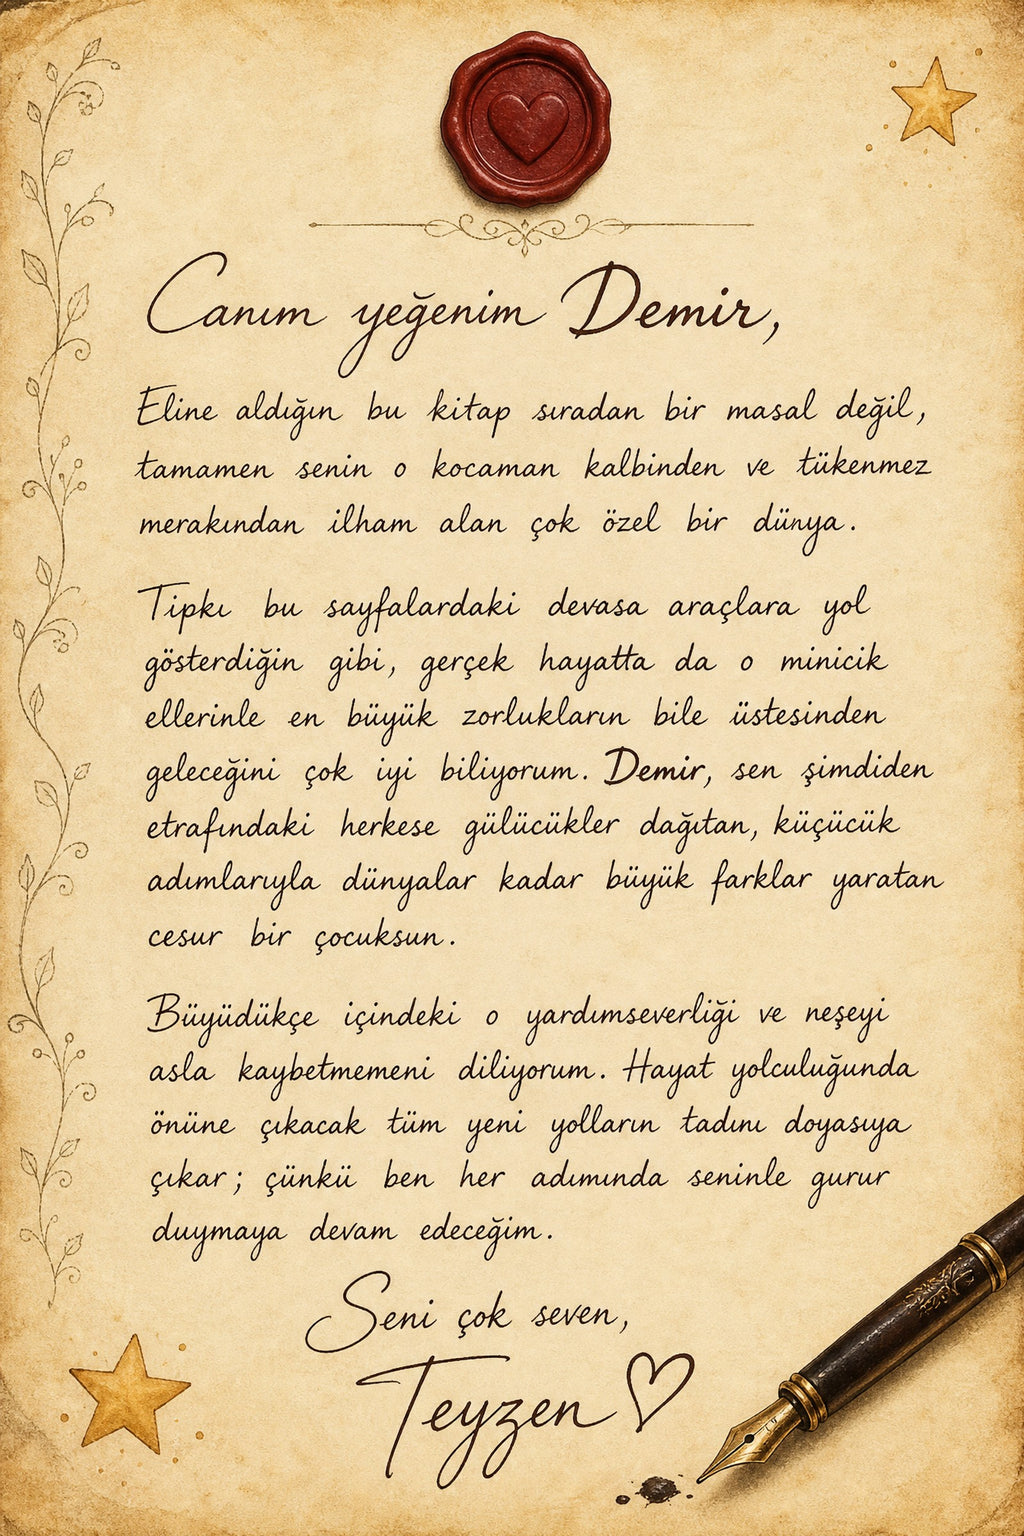 Canım yeğenim Demir,
Eline aldığın bu kitap sıradan bir masal değil,
tamamen senin o kocaman kalbinden ve tükenmez
merakından ilham alan çok özel bir dünya.
Tıpkı bu sayfalardaki devasa araçlara yol
gösterdiğin gibi, gerçek hayatta da o minicik
ellerinle en büyük zorlukların bile üstesinden
geleceğini çok iyi biliyorum. Demir, sen şimdiden
etrafındaki herkese gülücükler dağıtan, küçücük
adımlarıyla dünyalar kadar büyük farklar yaratan
cesur bir çocuksun.
Büyüdükçe içindeki o yardımseverliği ve neşeyi
asla kaybetmemeni diliyorum. Hayat yolculuğunda
önüne çıkacak tüm yeni yolların tadını doyasıya
çıkar; çünkü ben her adımında seninle gurur
duymaya devam edeceğim.
Seni çok seven,
Teyzen ♡